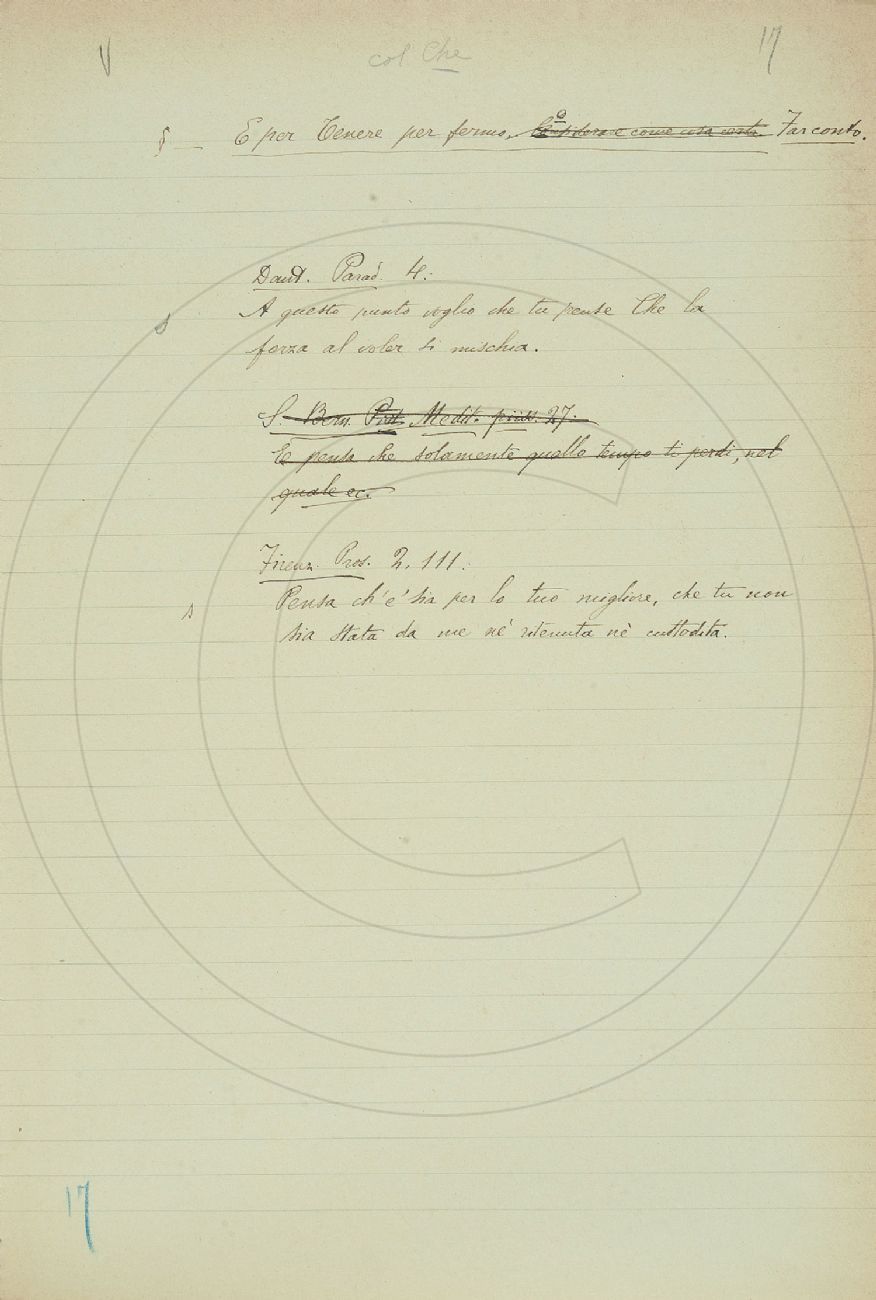 V col Che 17
§ — E per Tenere per fermo, Considerare come cosa certa o Far conto.
Dant. Parad. 4:
A questo punto voglio che tu pense Che la
s
forza al voler si mischia.
S. Bern. Medit. piiss. 27.
E pensa che solamente quello tempo ti perdi, nel
quale ec.
Firenz. Pros. 2. 111.
Pensa ch'e' sia per lo tuo migliore, che tu non
s
sia stata da me nè ritenuta nè custodita.
17